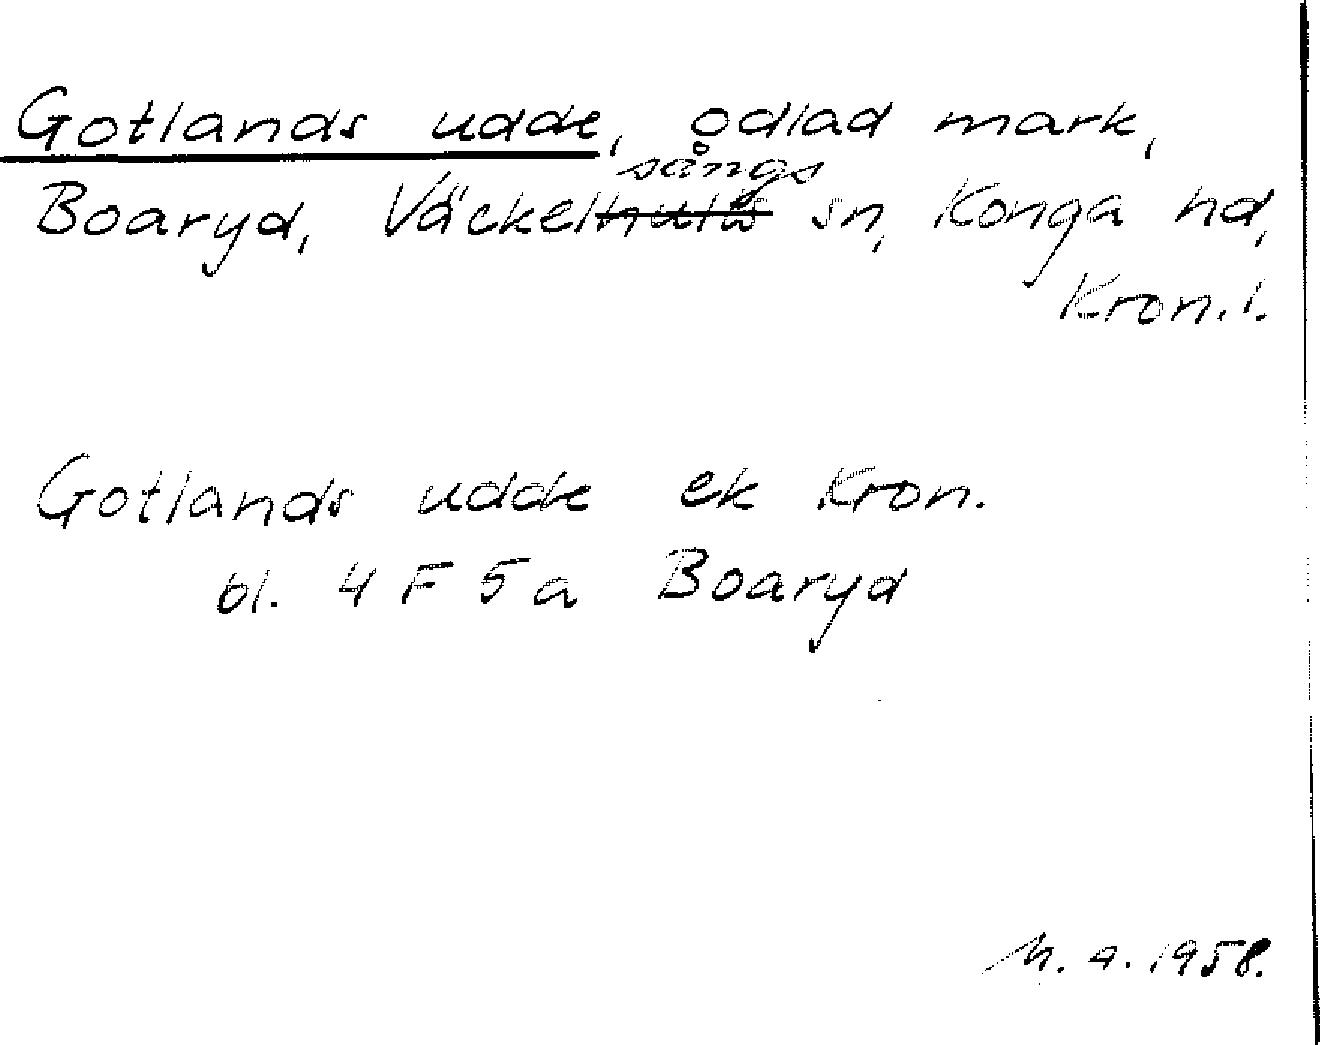 Gotlands udde, odlad mark,
sångs
Boaryd, Väckelhults sn, Konga hd,
Kron. l.
Gotlands udde ek Kron.
bl. 4 F 5 a Boaryd
1958.